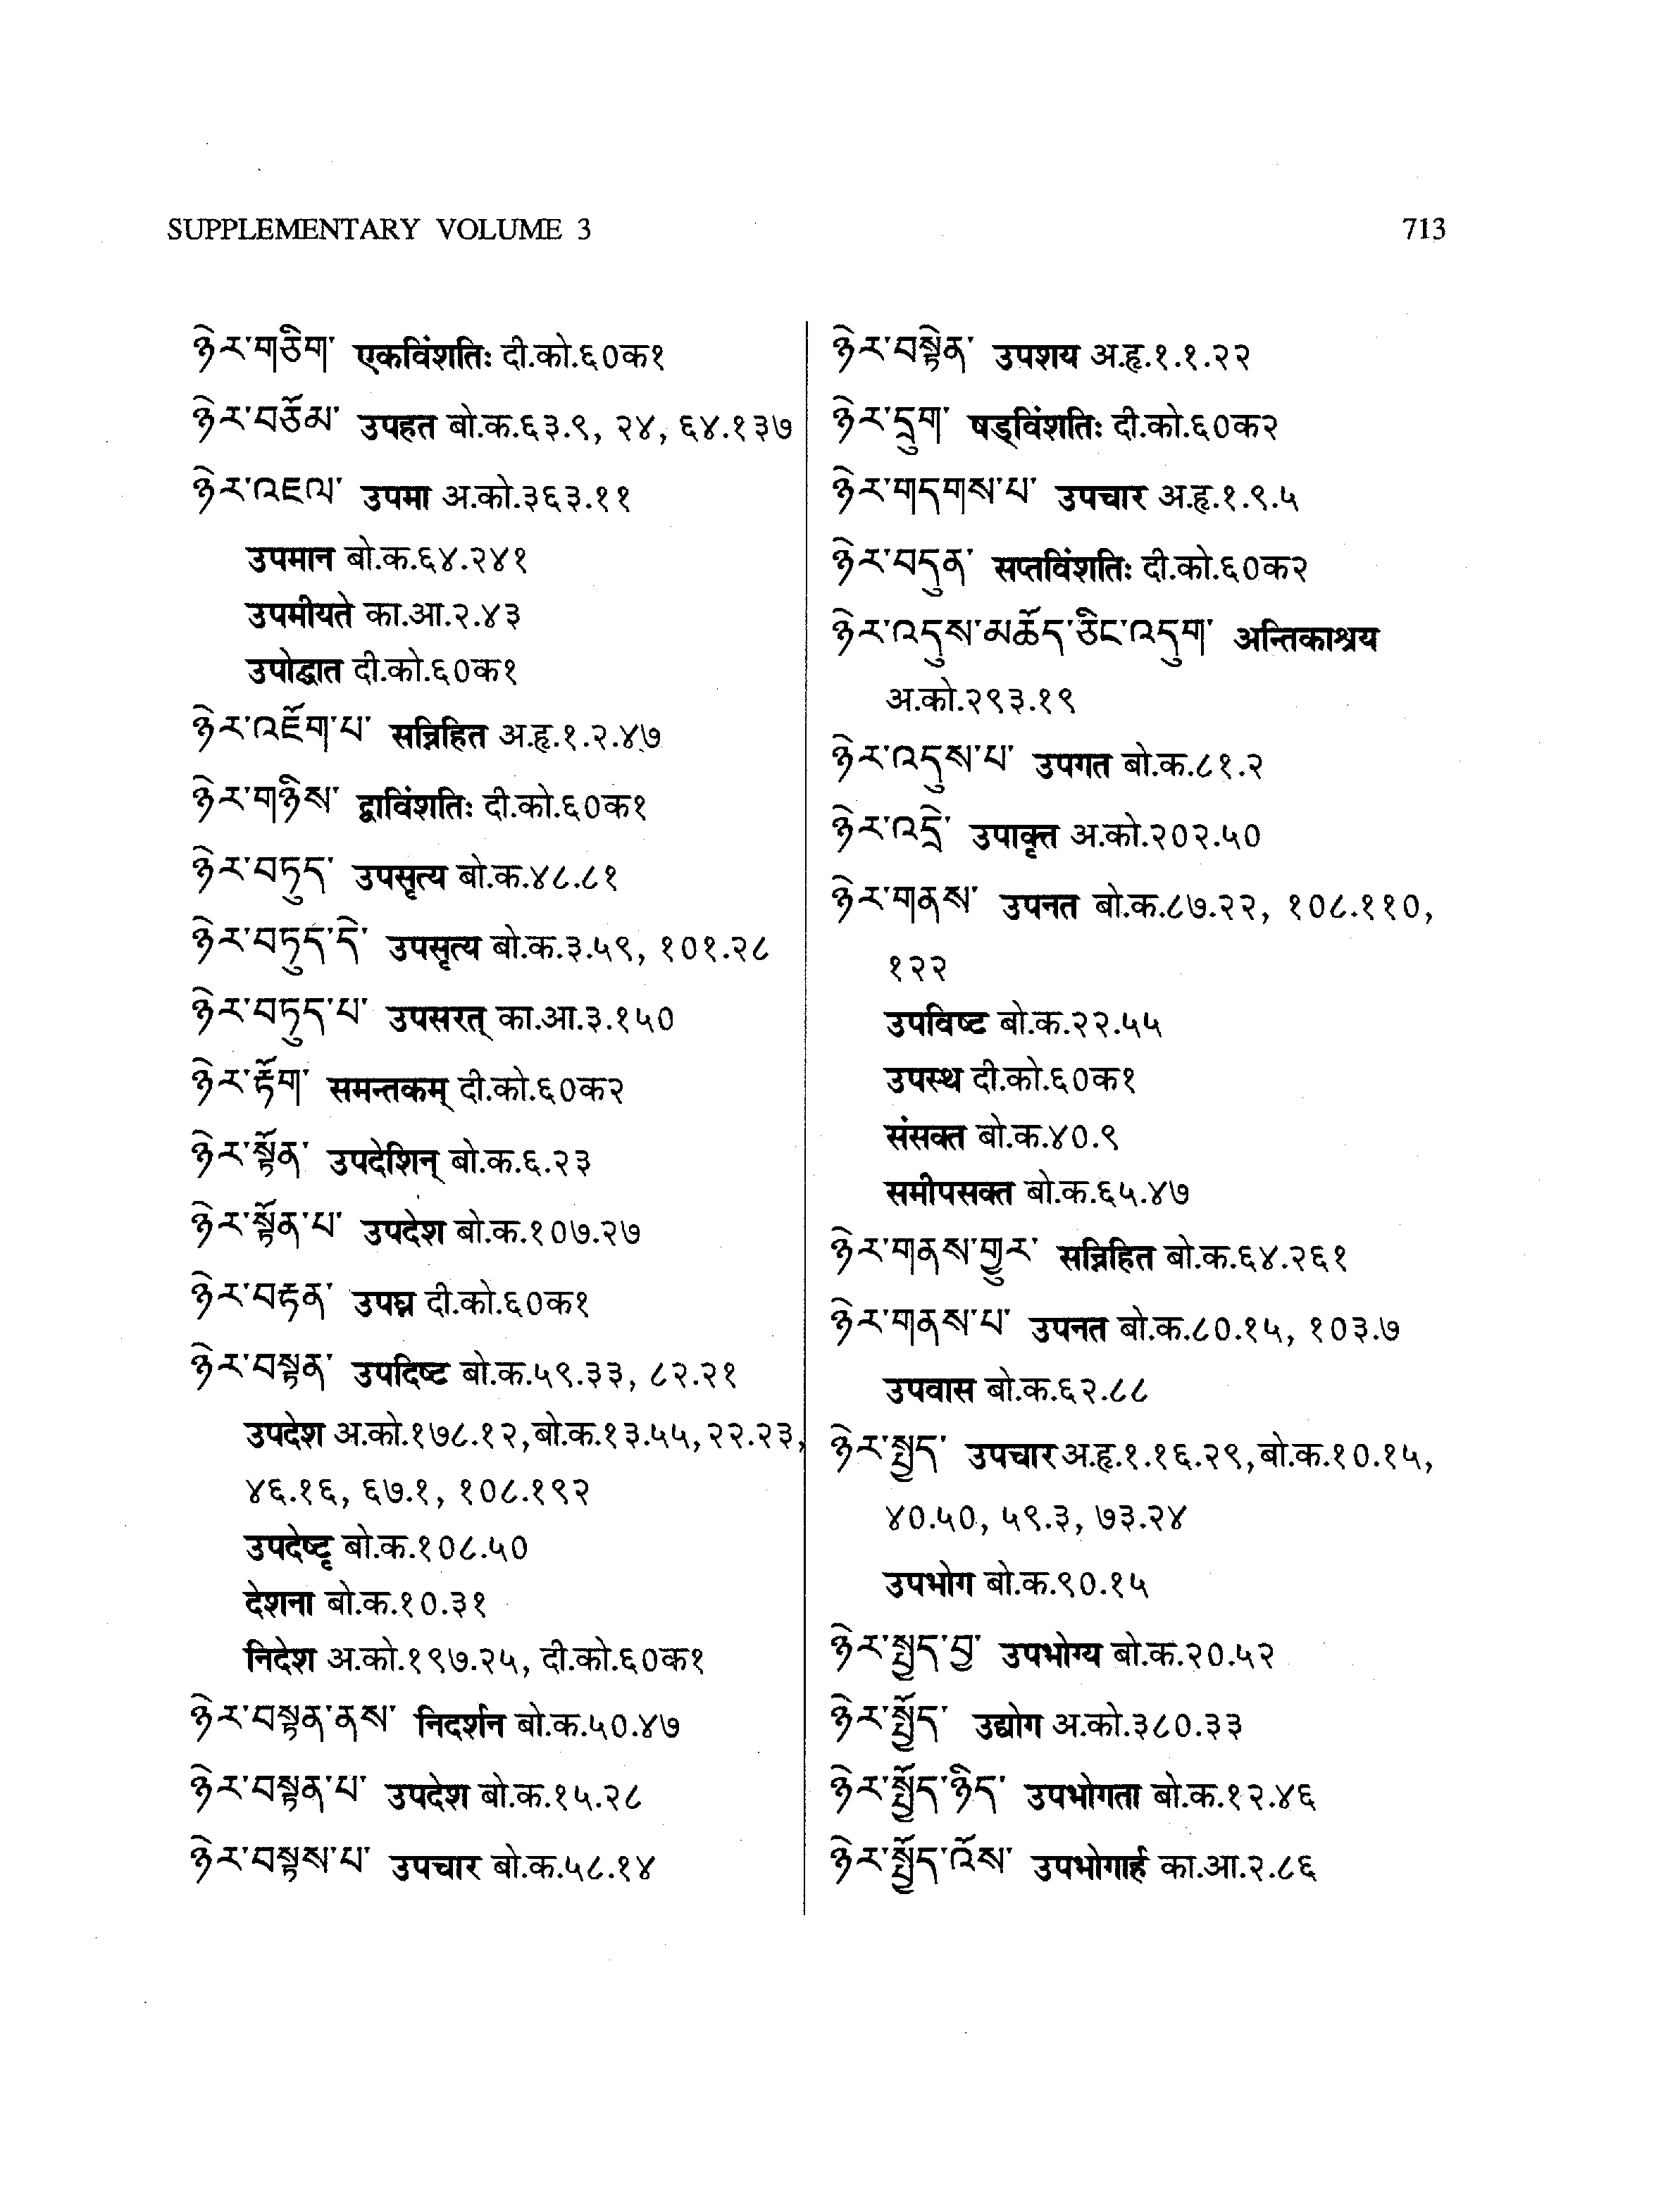 SUPPLEMENTARY VOLUME 3
713
ཉེར་གཅིག་ एकविंशतिः दी.को.६०क१
ཉེར་བཅོམ་ उपहत बो.क.६३.९, २४, ६४.१३७
ཉེར་འཇལ་ उपमा अ.को.३६३.११
उपमान बो.क.६४.२४१
उपमीयते का.आ.२.४३
उपोद्घात दी.को.६०क१
ཉེར་འཇོག་པ་ सन्निहित अ.हृ.१.२.४७
ཉེར་གཉིས་ द्वाविंशतिः दी.को.६०क१
ཉེར་བཏུད་ उपसृत्य बो.क.४८.८१
ཉེར་བཏུད་དེ་ उपसृत्य बो.क.३.५९, १०१.२८
ཉེར་བཏུད་པ་ उपसरत् का.आ.३.१५०
ཉེར་རྟོག་ समन्तकम् दी.को.६०क२
ཉེར་སྟོན་ उपदेशिन् बो.क.६.२३
ཉེར་སྟོན་པ་ उपदेश बो.क.१०७.२७
ཉེར་བརྟན་ उपघ्न दी.को.६०क१
ཉེར་བསྟན་ उपदिष्ट बो.क.५९.३३, ८२.२१
उपदेश अ.को.१७८.१२,बो.क.१३.५५,२२.२३,
४६.१६, ६७.१, १०८.१९२
उपदेष्टृ बो.क.१०८.५०
देशना बो.क.१०.३१
निदेश अ.को.१९७.२५, दी.को.६०क१
ཉེར་བསྟན་ནས་ निदर्शन बो.क.५०.४७
ཉེར་བསྟན་པ་ उपदेश बो.क.१५.२८
ཉེར་བསྟས་པ་ उपचार बो.क.५८.१४
ཉེར་བསྟེན་ उपशय अ.हृ.१.१.२२
ཉེར་དྲུག་ षड्विंशतिः दी.को.६०क२
ཉེར་གདགས་པ་ उपचार अ.हृ.१.९.५
ཉེར་བདུན་ सप्तविंशतिः दी.को.६०क२
ཉེར་འདུས་མཆོད་ཅིང་འདུག་ अन्तिकाश्रय
अ.को.२९३.१९
ཉེར་འདུས་པ་ उपगत बो.क.८१.२
ཉེར་འདྲེ་ उपाकृत अ.को.२०२.५०
ཉེར་གནས་ उपनत बो.क.८७.२२, १०८.११०,
१२२
उपविष्ट बो.क.२२.५५
उपस्थ दी.को.६०क१
संसक्त बो.क.४०.९
समीपसक्त बो.क.६५.४७
ཉེར་གནས་གྱུར་ सन्निहित बो.क.६४.२६१
ཉེར་གནས་པ་ उपनत बो.क.८०.१५, १०३.७
उपवास बो.क.६२.८८
ཉེར་སྤྱད་ उपचार अ.हृ.१.१६.२९,बो.क.१०.१५,
४०.५०, ५९.३, ७३.२४
उपभोग बो.क.९०.१५
ཉེར་སྤྱད་བྱ་ उपभोग्य बो.क.२०.५२
ཉེར་སྤྱོད་ उद्योग अ.को.३८०.३३
ཉེར་སྤྱོད་ཉིད་ उपभोगता बो.क.१२.४६
ཉེར་སྤྱོད་འོས་ उपभोगार्ह का.आ.२.८६